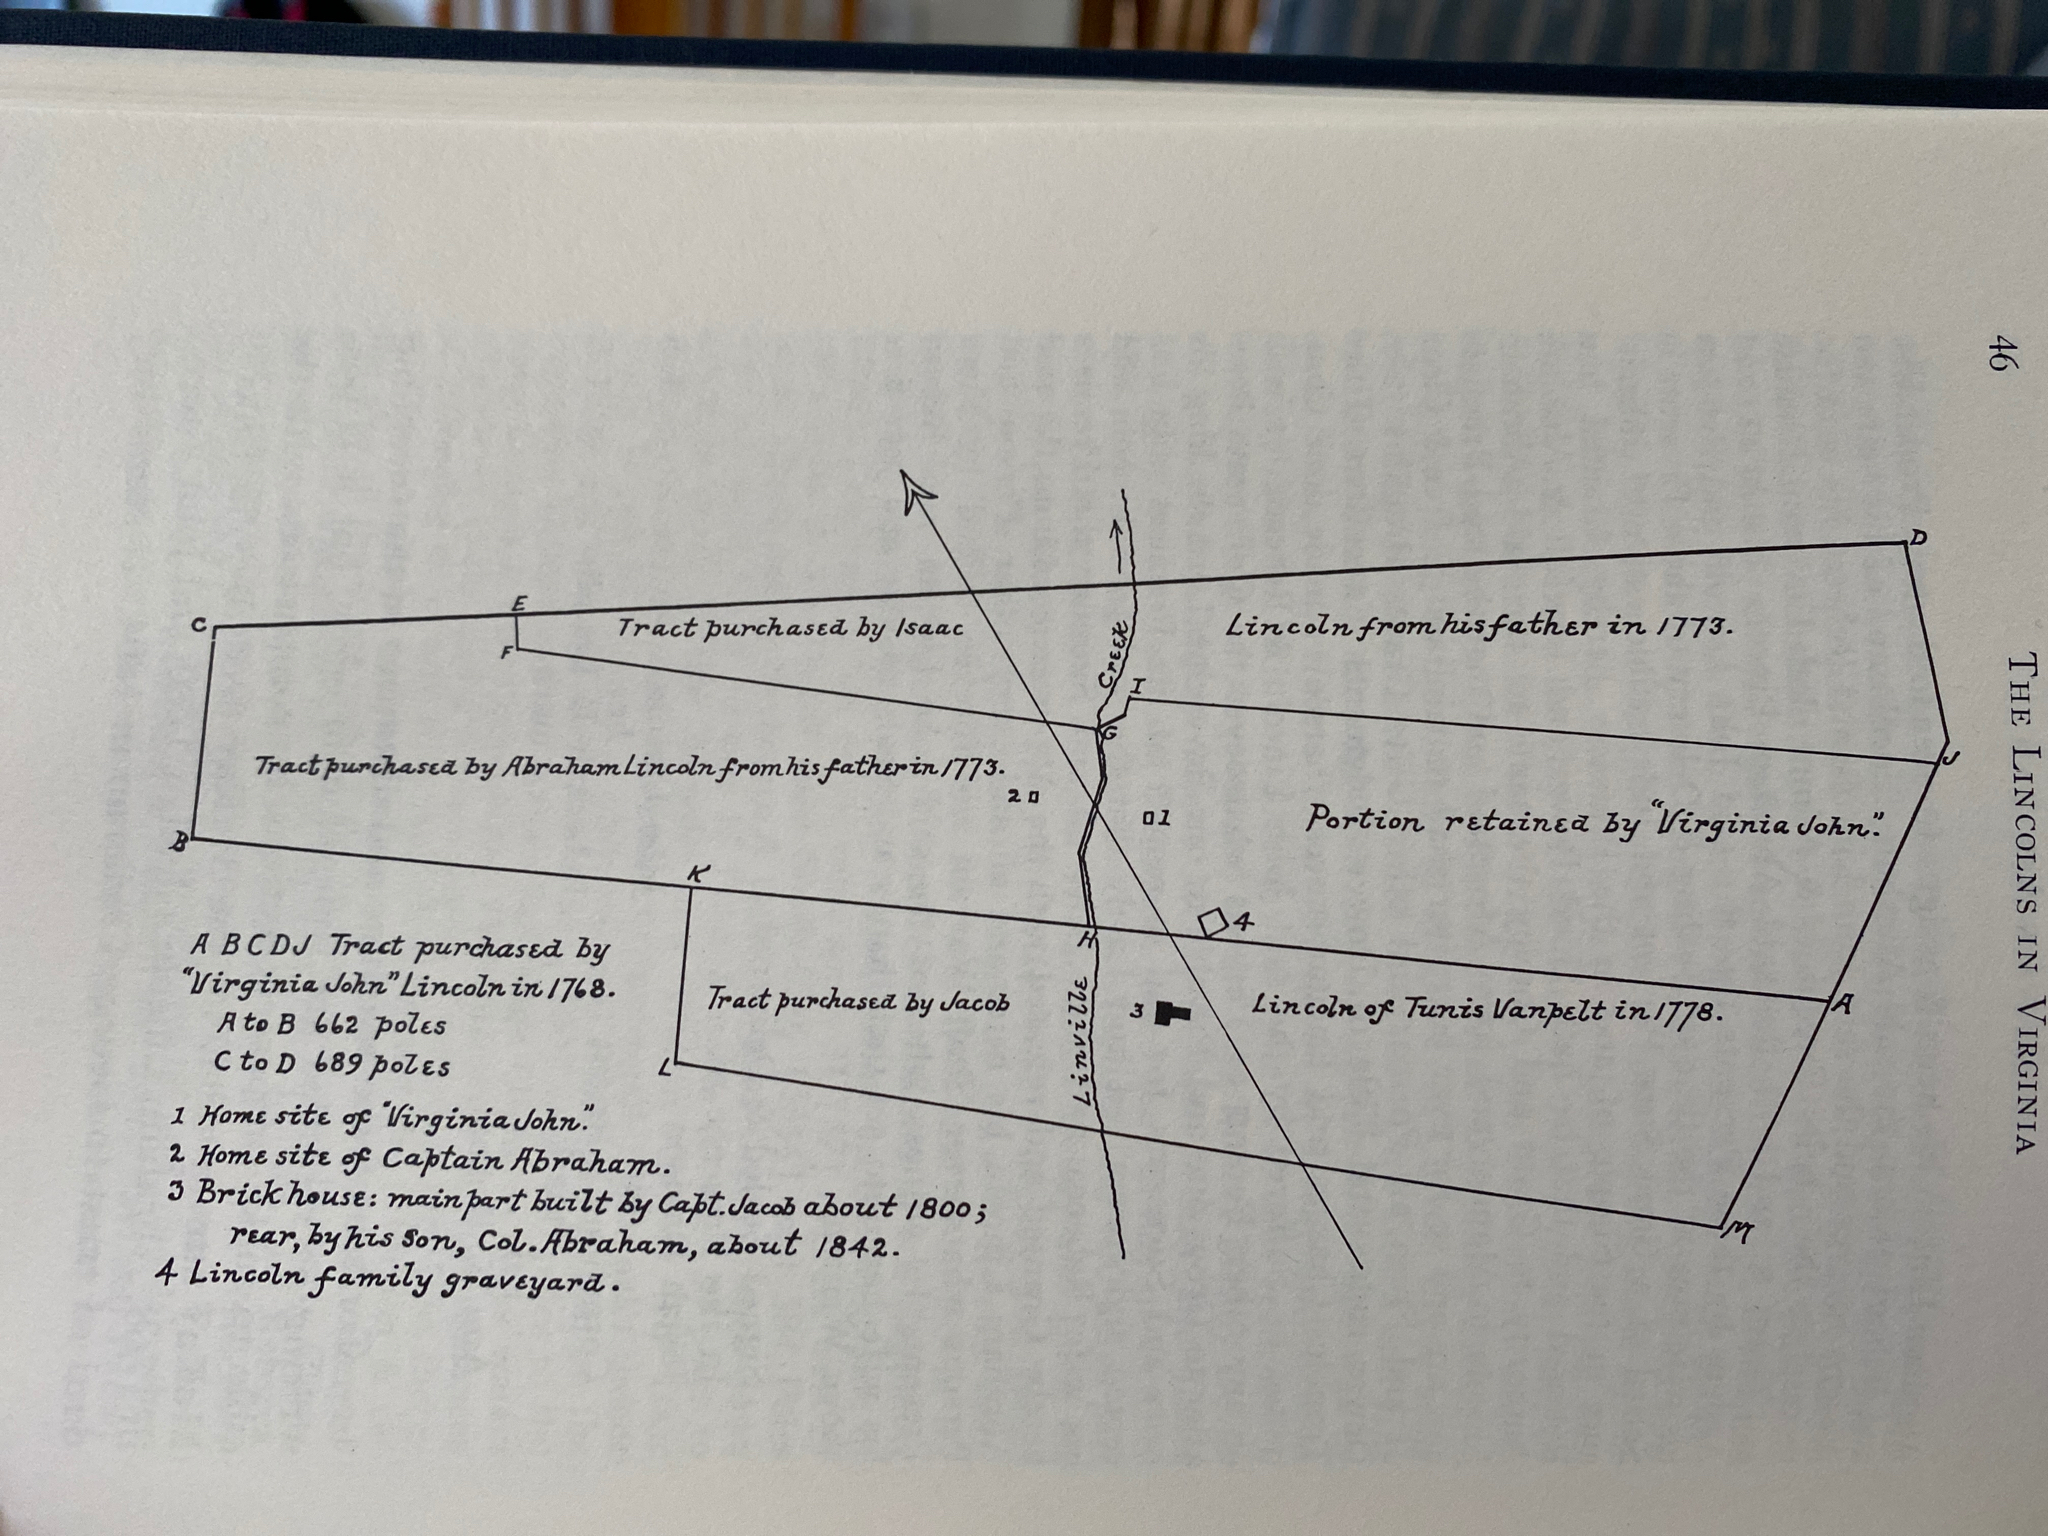 46
THE LINCOLNS IN VIRGINIA
D
C
E
Tract purchased by Isaac
Lincoln from his father in 1773.
F
Creek
I
G
J
Tract purchased by Abraham Lincoln from his father in 1773.
2
1
Portion retained by "Virginia John."
B
K
4
H
A
A B C D J Tract purchased by
"Virginia John" Lincoln in 1768.
A to B 662 poles
C to D 689 poles
Tract purchased by Jacob
Linville
3
Lincoln of Tunis Vanpelt in 1778.
L
M
1 Home site of "Virginia John."
2 Home site of Captain Abraham.
3 Brick house: main part built by Capt. Jacob about 1800;
rear, by his son, Col. Abraham, about 1842.
4 Lincoln family graveyard.